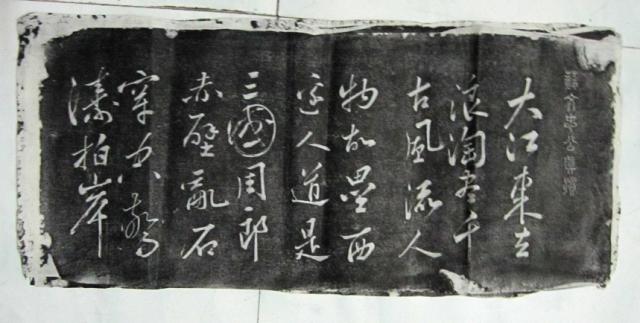 蘇文忠公
大江東去
浪淘盡千
古風流人
物故壘西
邊人道是
三國周郎
赤壁亂石
穿空驚
濤拍岸